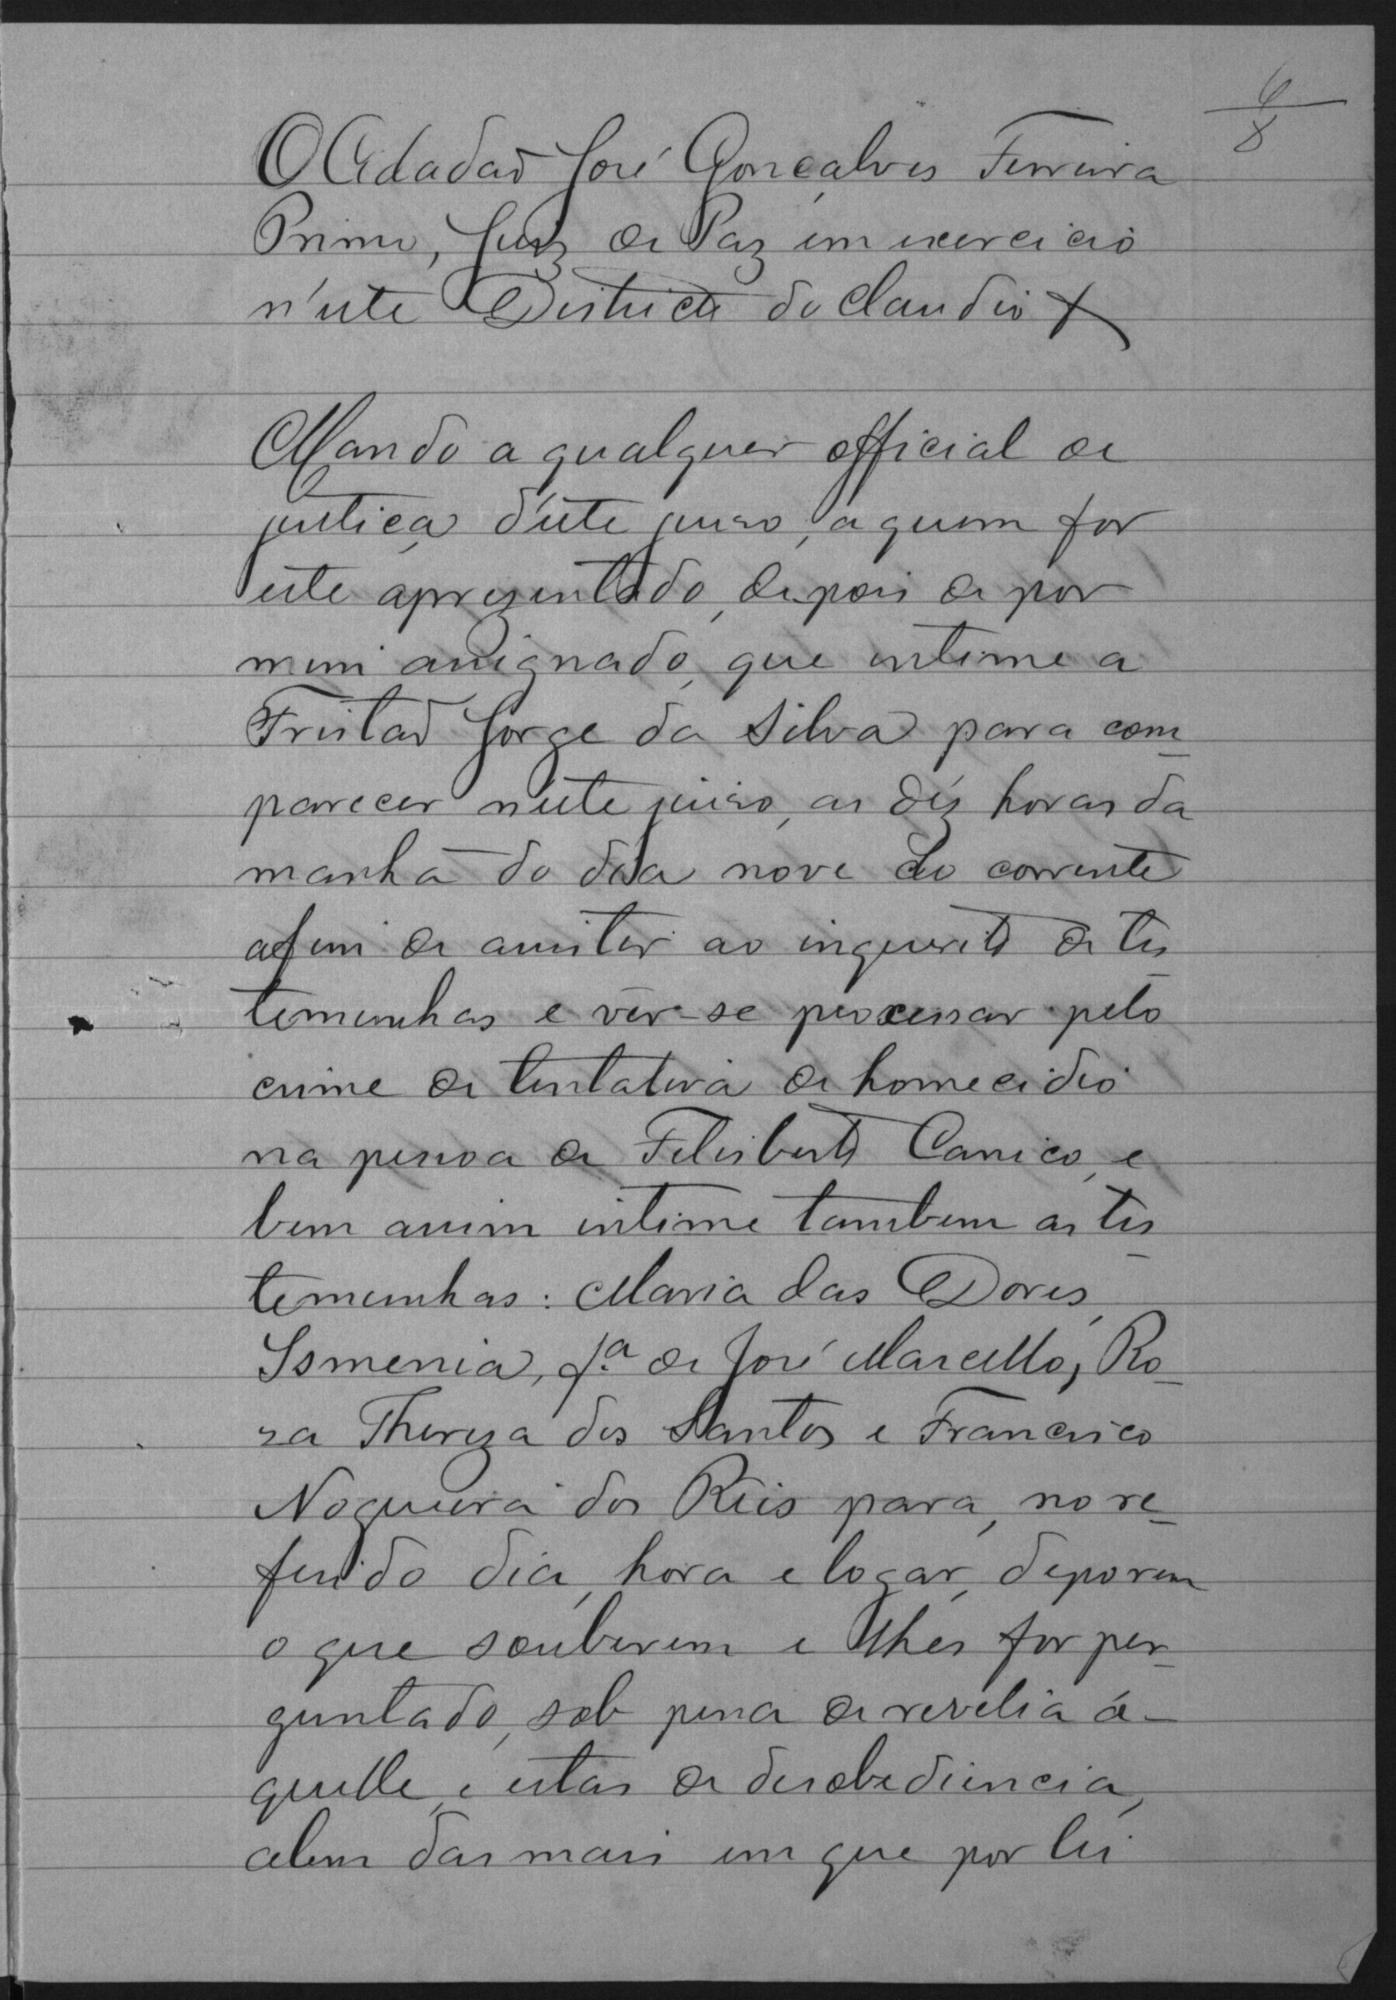 6
8
O Cidadaõ José Gonçalves Ferreira
Primo, Juiz de Paz em exercicio
n'este Districto do Claudio
Mando a qualquer official de
justiça d'este juiso, a quem for
este apresentado, depois de por
mim assignado, que intime a
Tristaõ Jorge da Silva para com_
parecer neste juiso, as déz horas da
manhã do dia nove do corrente
afim de assistir ao inquerito de tes
temunhas e vêr-se processar pelo
crime de tentativa de homecidio
na pessoa de Felisberto Canico, e
bem assim intime tambem as tes_
temunhas: Maria das Dores,
Ismenia, f.ª de José Marcello, Ro_
za Thereza dos Santos e Francisco
Nogueira dos Reis para, no re_
ferido dia, hora e logar, deporem
o que souberem e lhes for per_
guntado, sob pena de revelia á-
quelle, e estas de desobediencia,
alem das mais em que por lei